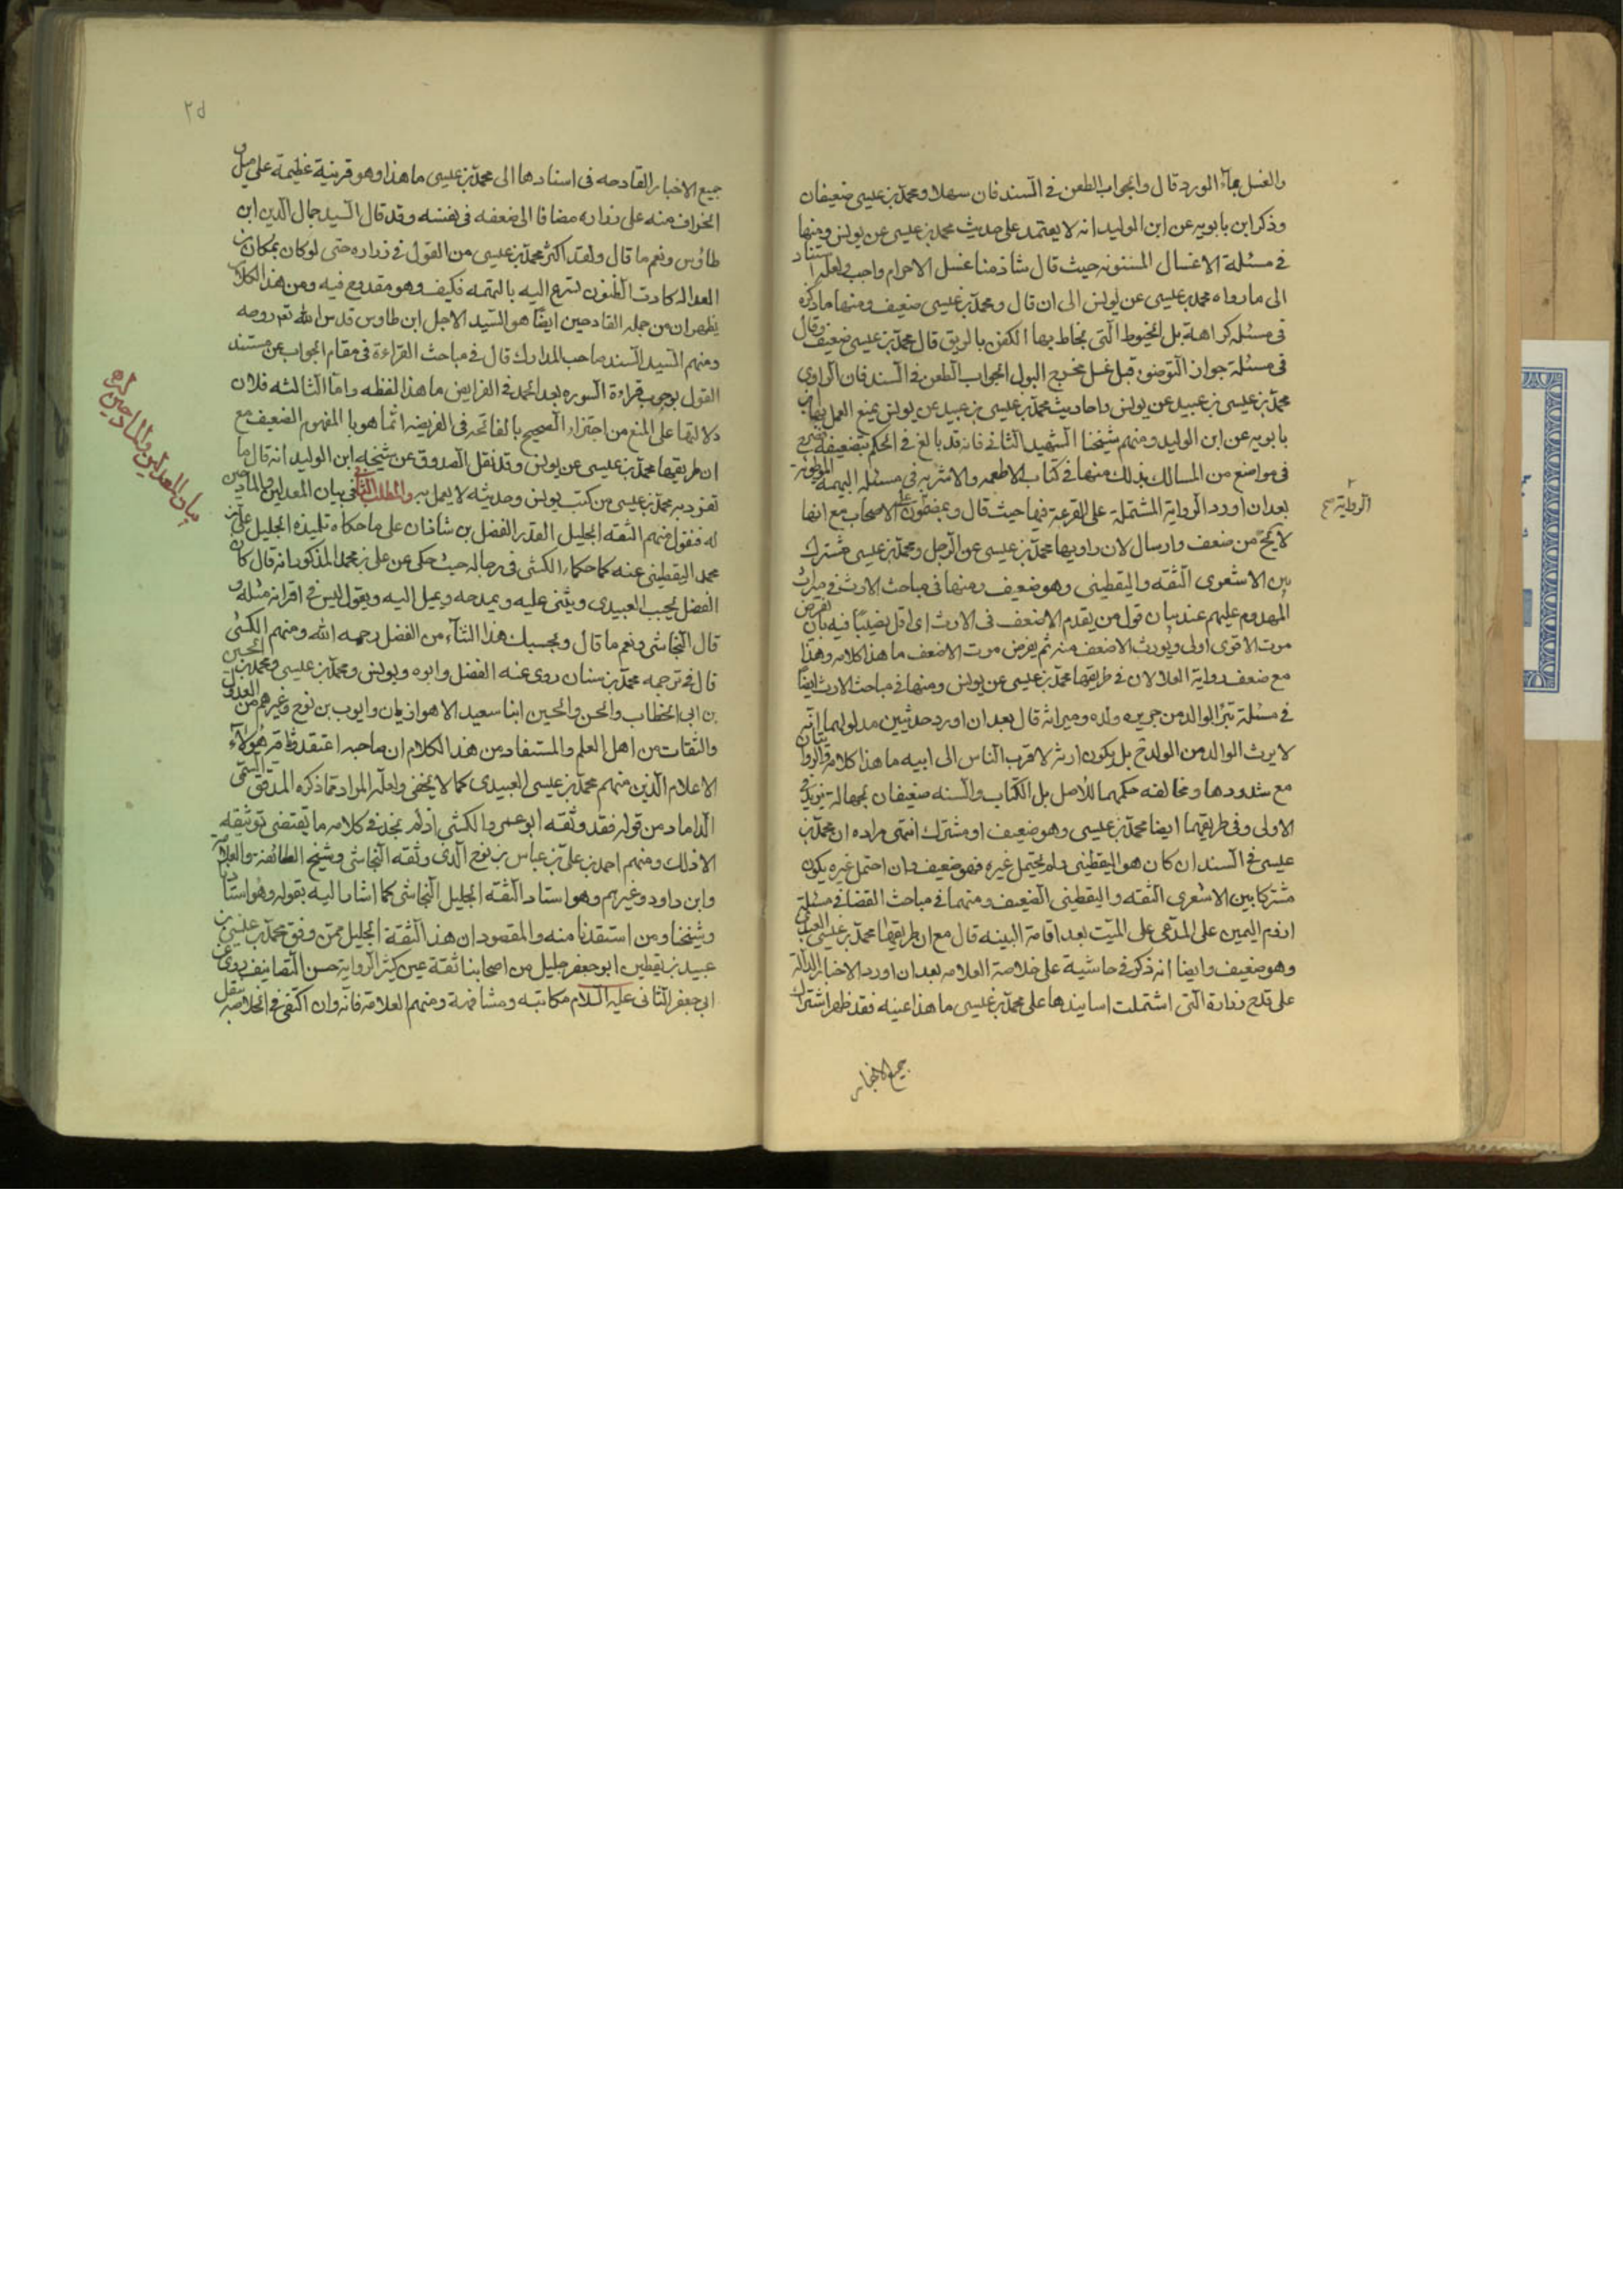 والغسل بماء الورد قال والجواب الطعن في السند فان سهلا ومحمد بن عيسى ضعيفان
وذكر ابن بابويه عن ابن الوليد انه لا يعتمد على حديث محمد بن عيسى عن يونس ومنها
في مسئلة الاغسال المسنونه حيث قال شاذ منا غسل الاحرام واجب ولعله استناد
الى ما رواه محمد بن عيسى عن يونس الى ان قال ومحمد بن عيسى ضعيف ومنها ما ذكره
في مسئله كراهة بل الخيوط التي يخاط بها الكفن بالريق قال محمد بن عيسى ضعيف وقال
في مسئلة جواز التوضؤ قبل غسل مخرج البول الجواب الطعن في السند فان الراوي
محمد بن عيسى بن عبيد عن يونس واحاديث محمد بن عيسى بن عبيد عن يونس يمنع العمل بها ابن
بابويه عن ابن الوليد ومنهم شيخنا الشهيد الثاني فانه قد بالغ في الحكم بتضعيفه فصرح
في مواضع من المسالك بذلك منها في كتاب الاطعمه والاشربه في مسئله البهيمة الموطوئة
بعد ان اورد الرواية المشتملة على القرعة فيها حيث قال وبمضمون عمل الاصحاب مع انها
الرواية صح
لا يخ من ضعف وارسال لان راويها محمد بن عيسى عن الرجل ومحمد بن عيسى مشترك
بين الاشعرى الثقه واليقطيني وهو ضعيف ومنها في مباحث الارث في ميراث
المهدوم عليهم عند بيان قول من يقدم الاضعف في الارث اى اقل نصيبا فيه بان نفرض
موت الاقوى اولى ويورث الاضعف منه ثم يفرض موت الاضعف ما هذا كلامه وهذا
مع ضعف رواية العلا لان في طريقها محمد بن عيسى عن يونس ومنها في مباحث الارث ايضا
في مسئلة تبرأ الوالد من جريره ولده وميراثه قال بعد ان اورد حديثين مدلولهما انه
لا يرث الوالد من الولد ح بل يكون ارثه لاقرب الناس الى ابيه ما هذا كلامه والروايتان
مع شذوذها ومخالفه حكمهما للاصل بل الكتاب والسنه ضعيفان بجهالة يزيد في
الاولى وفي طريقهما ايضا محمد بن عيسى وهو ضعيف او مشترك انتهى مراده ان محمد بن
عيسى في السند ان كان هو اليقطيني ولم يحتمل غيره فهو ضعيف وان احتمل غيره يكون
مشتركا بين الاشعرى الثقه واليقطيني الضعيف ومنها في مباحث القضا في مسئلة
لزوم اليمين على المدعى على الميت بعد اقامة البينه قال مع ان طريقها محمد بن عيسى العبيدى
وهو ضعيف وايضا انه ذكر في حاشية على خلاصة العلامه بعد ان اورد الاخبار الدالة
على قدح زرارة التى اشتملت اسانيدها على محمد بن عيسى ما هذا عينه فقد ظهر اشتراك
جميع الاخبار
٢٥
جميع الاخبار القادحه في اسنادها الى محمد بن عيسى ما هذا وهو قرينة عظيمة على ميل و
انحراف منه على زراره مضافا الى ضعفه في نفسه وقد قال السيد جمال الدين ابن
طاوس ونعم ما قال ولقد اكثر محمد بن عيسى من القول في زراره حتى لو كان بمكان من
العداله كادت الظنون تسرع اليه بالتهمه فكيف وهو مقدوح فيه ومن هذا الكلام
يظهر ان من جمله القادحين ايضا هو السيد الاجل ابن طاوس قدس الله تع روحه
ومنهم السيد السند صاحب المدارك قال في مباحث القراءة في مقام الجواب عن مستند
القول بوجوب قراءة السوره بعد الحمد في الفرايض ما هذا لفظه واما الثالثه فلان
دلالتها على المنع من اجتزاء الصحيح بالفاتحه في الفريضه انما هو بالمفهوم الضعيف مع
ان طريقها محمد بن عيسى عن يونس وقد نقل الصدوق عن شيخه ابن الوليد انه قال ما
تفرد به محمد بن عيسى من كتب يونس وحديثه لا يعمل به والمطلب الثانى في بيان المعدلين والمادحين
بيان المعدلين والمادحين له
له فنقول منهم الثقه الجليل القدر الفضل بن شاذان على ما حكاه تلميذه الجليل على بن
محمد اليقطيني عنه كما حكاه الكشى في رجاله حيث حكى عن على بن محمد المذكور انه قال كان
الفضل يحب العبيدى ويثنى عليه ويمدحه ويميل اليه ويقول ليس في اقرانه مثله و
قال النجاشى ونعم ما قال وبحسبك هذا الثناء من الفضل رحمه الله ومنهم الكشى
قال في ترجمه محمد بن سنان روى عنه الفضل وابوه ويونس ومحمد بن عيسى ومحمد بن الحسين
بن ابي الخطاب والحسن والحسين ابنا سعيد الاهوازيان وايوب بن نوح وغيرهم من العدول
والثقات من اهل العلم والمستفاد من هذا الكلام ان صاحبه اعتقد وثاقه هؤلاء
الاعلام الذين منهم محمد بن عيسى العبيدى كما لا يخفى ولعله المراد مما ذكره المدقق السمى
الداماد من قوله فقد وثقه ابو عمرو الكشى اذ لم نجد في كلامه ما يقتضى توثيقه
الا ذلك ومنهم احمد بن على بن عباس بن نوح الذى وثقه النجاشى وشيخ الطائفة والعلامه
وابن داود وغيرهم وهو استاد الثقه الجليل النجاشى كما اشار اليه بقوله وهو استادنا
وشيخنا ومن استفدنا منه والمقصود ان هذا الثقة الجليل ممن وثق محمد بن عيسى بن
عبيد بن يقطين ابو جعفر جليل من اصحابنا ثقة عين كثير الرواية حسن التصانيف روى عن
ابي جعفر الثانى عليه السلام مكاتبه ومشافهة ومنهم العلامة فانه وان اكتفى في الخلاصه بنقل